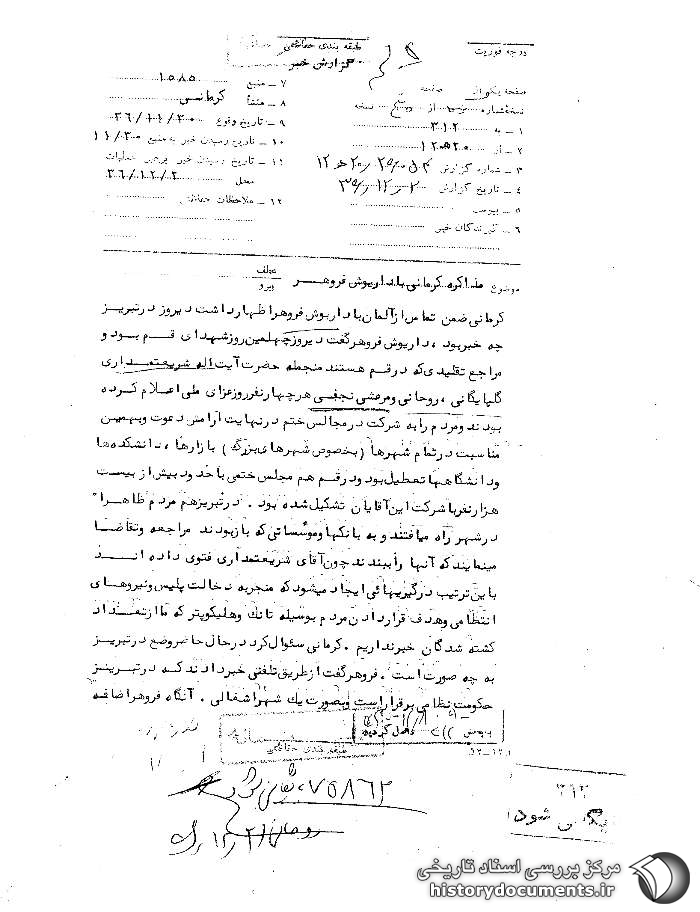 درجه فوریت
طبقه بندی حفاظتی
گزارش خبر
صفحه یک از
نسخه شماره از نسخه
۱ – به ۳۱۲
۲ – از ۱۲ ه ۲۰
۳ – شماره گزارش
۴ – تاریخ گزارش
۵ – پیوست
۶ – گیرندگان خبر
۷ – منبع ۱۰۸۵
۸ – منشأ کرمانی
۹ – تاریخ وقوع ۳۶/۱۱/۳۰
۱۰ – تاریخ رسیدن خبر به منبع ۱۱/۳۰
۱۱ – تاریخ رسیدن خبر برهبر عملیات
محل ۳۶/۱۲/۲
۱۲ – ملاحظات حفاظتی
موضوع مذاکره کرمانی با داریوش فروهر
عطف
پیرو
کرمانی ضمن تماس از آلمان با داریوش فروهر اظهار داشت دیروز در تبریز
چه خبر بود ، داریوش فروهر گفت دیروز چهلمین روز شهدای قم بود و
مراجع تقلیدی که در قم هستند منجمله حضرت آیت اله شریعتمداری
گلپایگانی ، روحانی ومرعشی نجفی هر چهار نفر روز عزای ملی اعلام کرده
بودند ومردم را به شرکت در مجالس ختم در نهایت آرامش دعوت وبهمین
مناسبت در تمام شهرها (بخصوص شهرهای بزرگ ) بازارها ، دانشکده ها
ودانشگاهها تعطیل بود ودر قم هم مجلس ختمی با حدود بیش از بیست
هزار نفر با شرکت این آقایان تشکیل شده بود . در تبریز هم مردم ظاهرا"
در شهر راه میافتند و به بانکها وموسساتی که باز بودند مراجعه وتقاضا
مینمایند که آنها را ببندند چون آقای شریعتمداری فتوی داده اند
باین ترتیب درگیریهائی ایجاد میشود که منجر به دخالت پلیس ونیروهای
انتظامی وهدف قرار دادن مردم بوسیله تانک وهلیکوپتر که ما از تعداد
کشته شدگان خبر نداریم . کرمانی سئوال کرد در حال حاضر وضع در تبریز
به چه صورت است ، فروهر گفت از طریق تلفنی خبر دادند که در تبریز
حکومت نظامی برقرار است وبصورت یک شهر اشغالی . آنگاه فروهر اضافه
طبقه بندی حفاظتی
۷۵۸۶۲
۳۱۲
مرکز بررسی اسناد تاریخی
historydocuments.ir